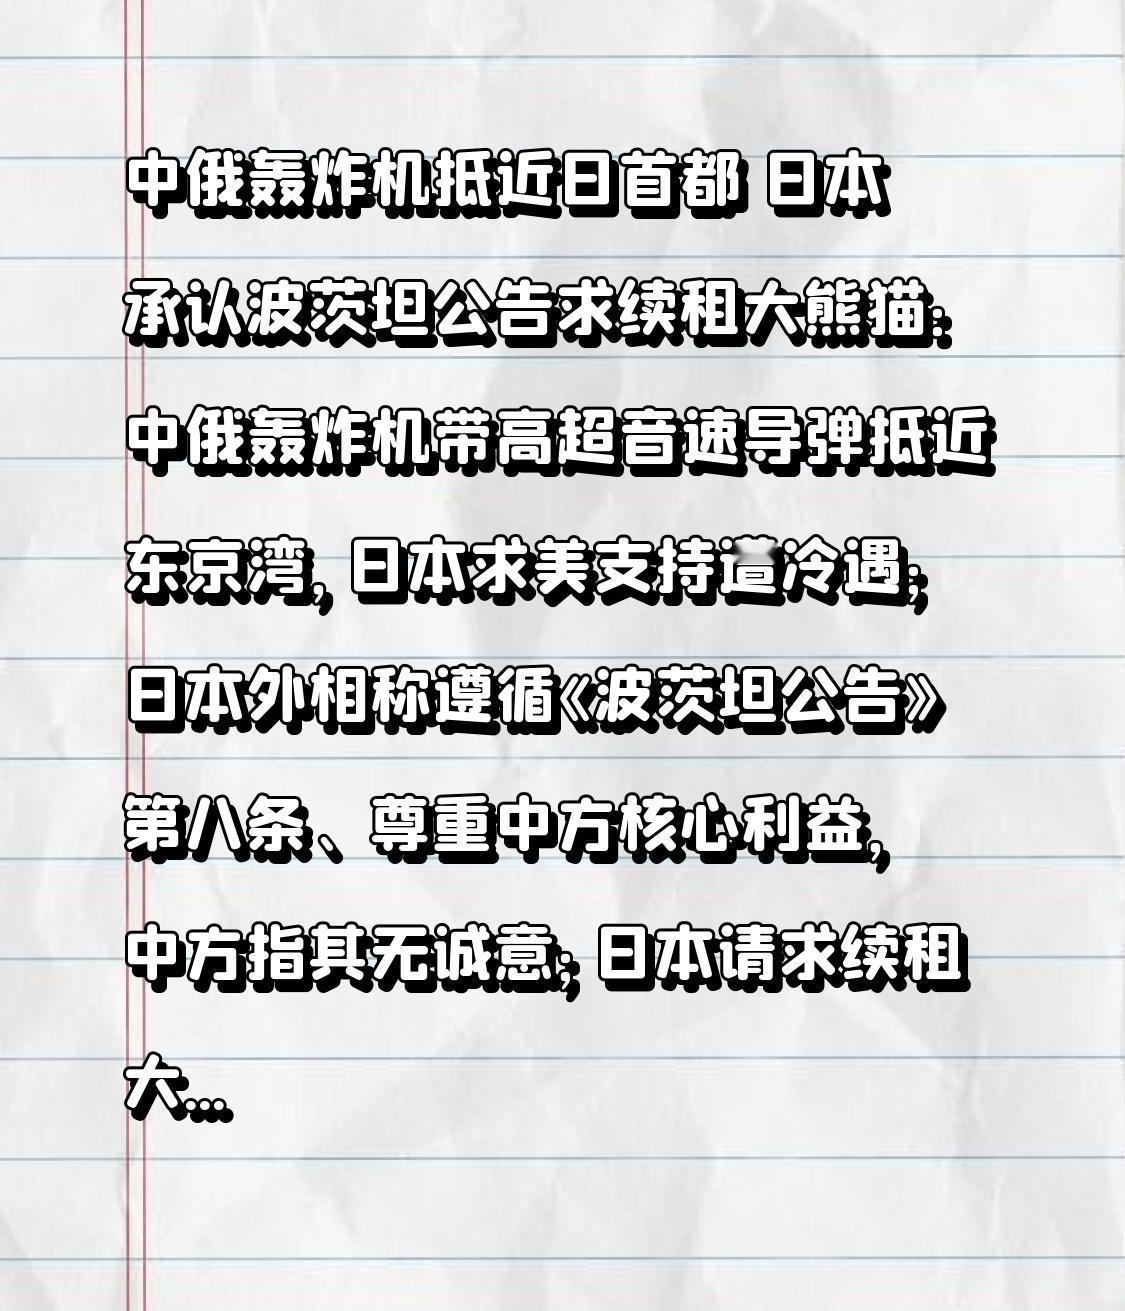 中俄轰炸机抵近日首都 日本
承认波茨坦公告求续租大熊猫:
中俄轰炸机带高超音速导弹抵近
东京湾, 日本求美支持遭冷遇;
日本外相称遵循《波茨坦公告》
第八条、尊重中方核心利益,
中方指其无诚意; 日本请求续租
大...